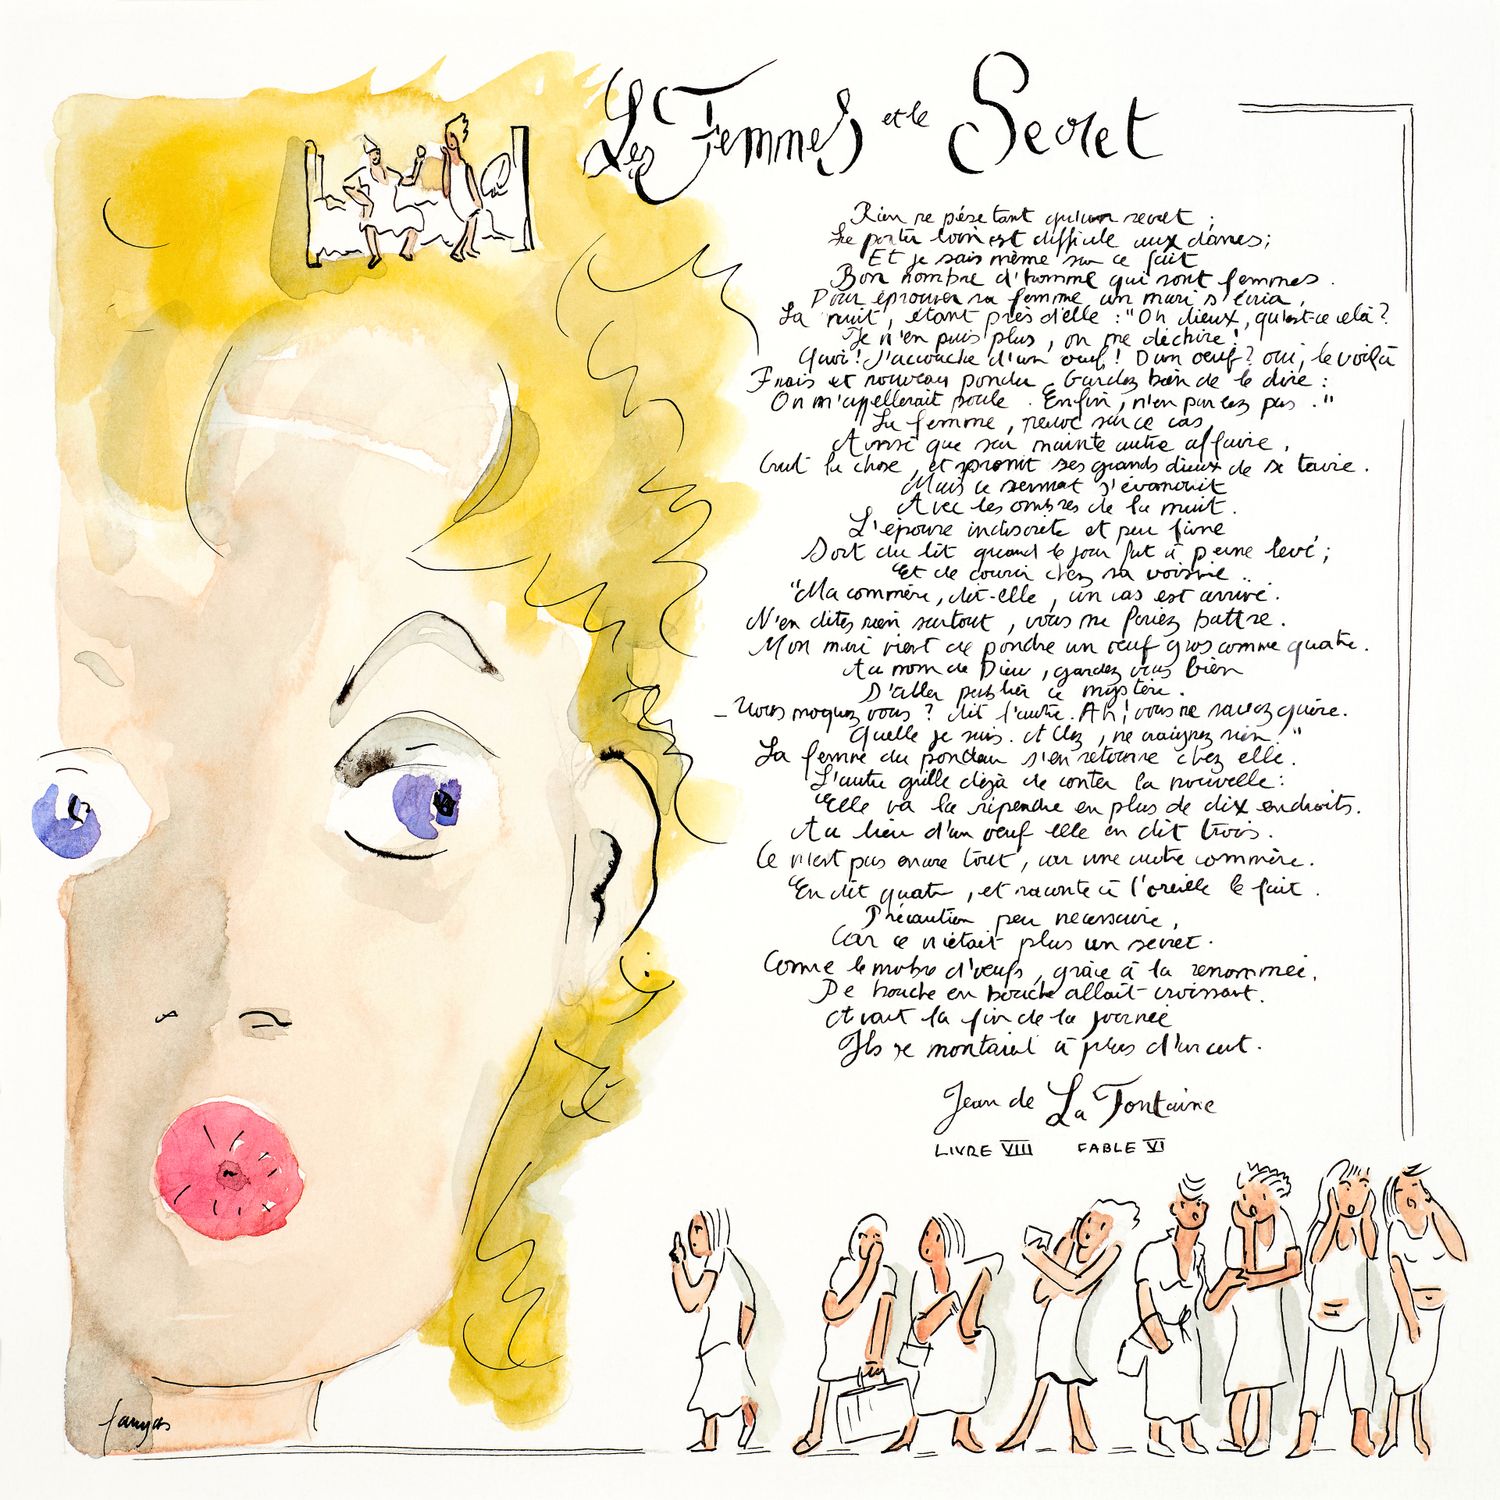 Les Femmes et le Secret
Rien ne pèse tant qu'un secret ;
Le porter loin est difficile aux dames;
Et je sais même sur ce fait
Bon nombre d'homme qui sont femmes.
Pour éprouver sa femme un mari s'écria,
La nuit, étant près d'elle : "Oh dieux, qu'est-ce cela?
Je n'en puis plus, on me déchire !
Quoi! J'accouche d'un oeuf! D'un oeuf? oui, le voilà
Frais et nouveau pondu. Gardez bien de le dire :
On m'appellerait poule. Enfin, n'en parlez pas."
La femme, neuve sur ce cas,
Ainsi que sur mainte autre affaire,
Crut la chose, et promit ses grands dieux de se taire.
Mais ce serment s'évanouit
Avec les ombres de la nuit.
L'épouse indiscrète et peu fine
Sort du lit quand le jour fut à peine levé;
Et de courir chez sa voisine..
"Ma commère, dit-elle, un cas est arrivé.
N'en dites rien surtout, vous me feriez battre.
Mon mari vient de pondre un oeuf gros comme quatre.
Au nom de Dieu, gardez vous bien
D'aller publier ce mystère.
_ Vous moquez vous ? dit l'autre. Ah! vous ne savez guère.
Quelle je suis. Allez, ne craignez rien."
La femme du pondeur s'en retourne chez elle.
L'autre grille déjà de conter la nouvelle:
Elle va la répendre en plus de dix endroits.
Au lieu d'un oeuf elle en dit trois.
Ce n'est pas encore tout, car une autre commère.
En dit quatre, et raconte à l'oreille le fait.
Précaution peu necessaire,
Car ce n'était plus un secret.
Comme le nombre d'oeufs, grâce à la renommée,
De bouche en bouche allait croissant.
Avant la fin de la journée
Ils se montaient à plus d'un cent.
Jean de La Fontaine
LIVRE VIII FABLE VI